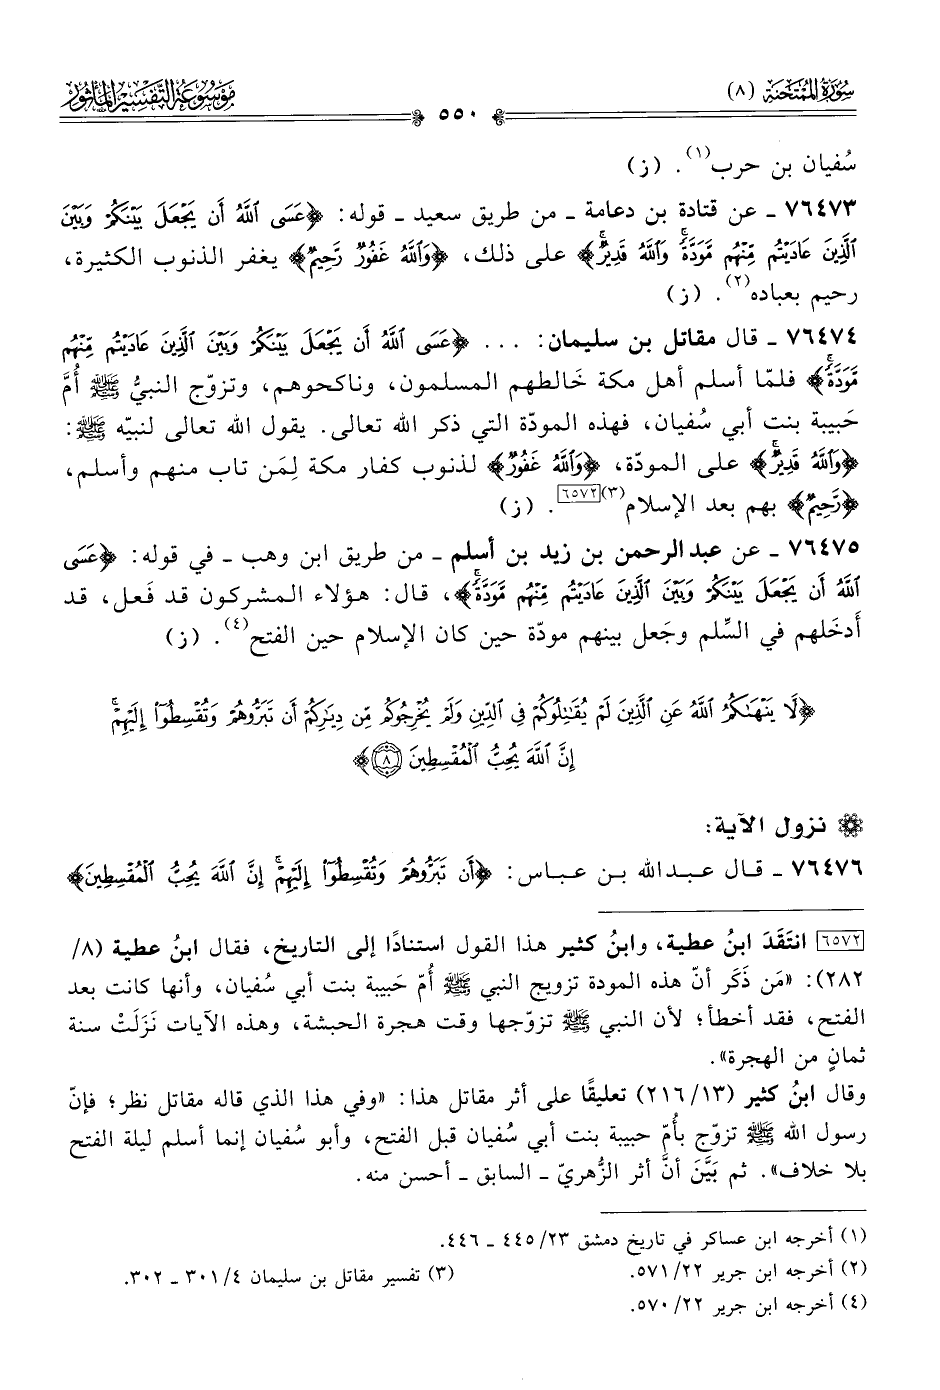 سُورَةُ المُمْتَحنَة (٨)
٥٥٠
مَوْسُوعَة التَّفْسِير المَأْثُور
سُفيان بن حرب(١). (ز)
٧٦٤٧٣ ـ عن قتادة بن دعامة ـ من طريق سعيد ـ قوله: ﴿عَسَى ٱللَّهُ أَن يَجْعَلَ بَيْنَكُمْ وَبَيْنَ
ٱلَّذِينَ عَادَيْتُم مِّنْهُم مَّوَدَّةً ۚ وَٱللَّهُ قَدِيرٌ ۚ﴾ على ذلك، ﴿وَٱللَّهُ غَفُورٌ رَّحِيمٌ﴾ يغفر الذنوب الكثيرة،
رحيم بعباده(٢). (ز)
٧٦٤٧٤ ـ قال مقاتل بن سليمان: ... ﴿عَسَى ٱللَّهُ أَن يَجْعَلَ بَيْنَكُمْ وَبَيْنَ ٱلَّذِينَ عَادَيْتُم مِّنْهُم
مَّوَدَّةً ۚ﴾ فلمّا أسلم أهل مكة خَالطهم المسلمون، وناكحوهم، وتزوّج النبيُّ ﷺ أُمَّ
حَبيبة بنت أبي سُفيان، فهذه المودّة التي ذكر الله تعالى. يقول الله تعالى لنبيّه ﷺ:
﴿وَٱللَّهُ قَدِيرٌ ۚ﴾ على المودّة، ﴿وَٱللَّهُ غَفُورٌ﴾ لذنوب كفار مكة لِمَن تاب منهم وأسلم،
﴿رَّحِيمٌ﴾ بهم بعد الإسلام(٣)[٦٥٧٢]. (ز)
٧٦٤٧٥ ـ عن عبد الرحمن بن زيد بن أسلم ـ من طريق ابن وهب ـ في قوله: ﴿عَسَى
ٱللَّهُ أَن يَجْعَلَ بَيْنَكُمْ وَبَيْنَ ٱلَّذِينَ عَادَيْتُم مِّنْهُم مَّوَدَّةً ۚ﴾، قال: هؤلاء المشركون قد فَعل، قد
أَدخَلهم في السِّلم وجَعل بينهم مودّة حين كان الإسلام حين الفتح(٤). (ز)
﴿لَّا يَنْهَىٰكُمُ ٱللَّهُ عَنِ ٱلَّذِينَ لَمْ يُقَٰتِلُوكُمْ فِى ٱلدِّينِ وَلَمْ يُخْرِجُوكُم مِّن دِيَٰرِكُمْ أَن تَبَرُّوهُمْ وَتُقْسِطُوٓا۟ إِلَيْهِمْ ۚ
إِنَّ ٱللَّهَ يُحِبُّ ٱلْمُقْسِطِينَ ٨﴾
نزول الآية:
٧٦٤٧٦ ـ قال عبد الله بن عباس: ﴿أَن تَبَرُّوهُمْ وَتُقْسِطُوٓا۟ إِلَيْهِمْ ۚ إِنَّ ٱللَّهَ يُحِبُّ ٱلْمُقْسِطِينَ﴾
[٦٥٧٢] انتَقَدَ ابنُ عطية، وابنُ كثير هذا القول استنادًا إلى التاريخ، فقال ابنُ عطية (٨/
٢٨٢): «مَن ذَكَر أنّ هذه المودة تزويج النبي ﷺ أُمّ حَبيبة بنت أبي سُفيان، وأنها كانت بعد
الفتح، فقد أخطأ؛ لأن النبي ﷺ تزوّجها وقت هجرة الحبشة، وهذه الآيات نَزَلَتْ سنة
ثمانٍ من الهجرة».
وقال ابنُ كثير (٢١٦/١٣) تعليقًا على أثر مقاتل هذا: «وفي هذا الذي قاله مقاتل نظر؛ فإنّ
رسول الله ﷺ تزوّج بأُمّ حبيبة بنت أبي سُفيان قبل الفتح، وأبو سُفيان إنما أسلم ليلة الفتح
بلا خلاف». ثم بَيَّنَ أنَّ أثر الزُّهريّ ـ السابق ـ أحسن منه.
(١) أخرجه ابن عساكر في تاريخ دمشق ٢٣/ ٤٤٥ ـ ٤٤٦.
(٢) أخرجه ابن جرير ٢٢/ ٥٧١.
(٣) تفسير مقاتل بن سليمان ٤/ ٣٠١ ـ ٣٠٢.
(٤) أخرجه ابن جرير ٢٢/ ٥٧٠.